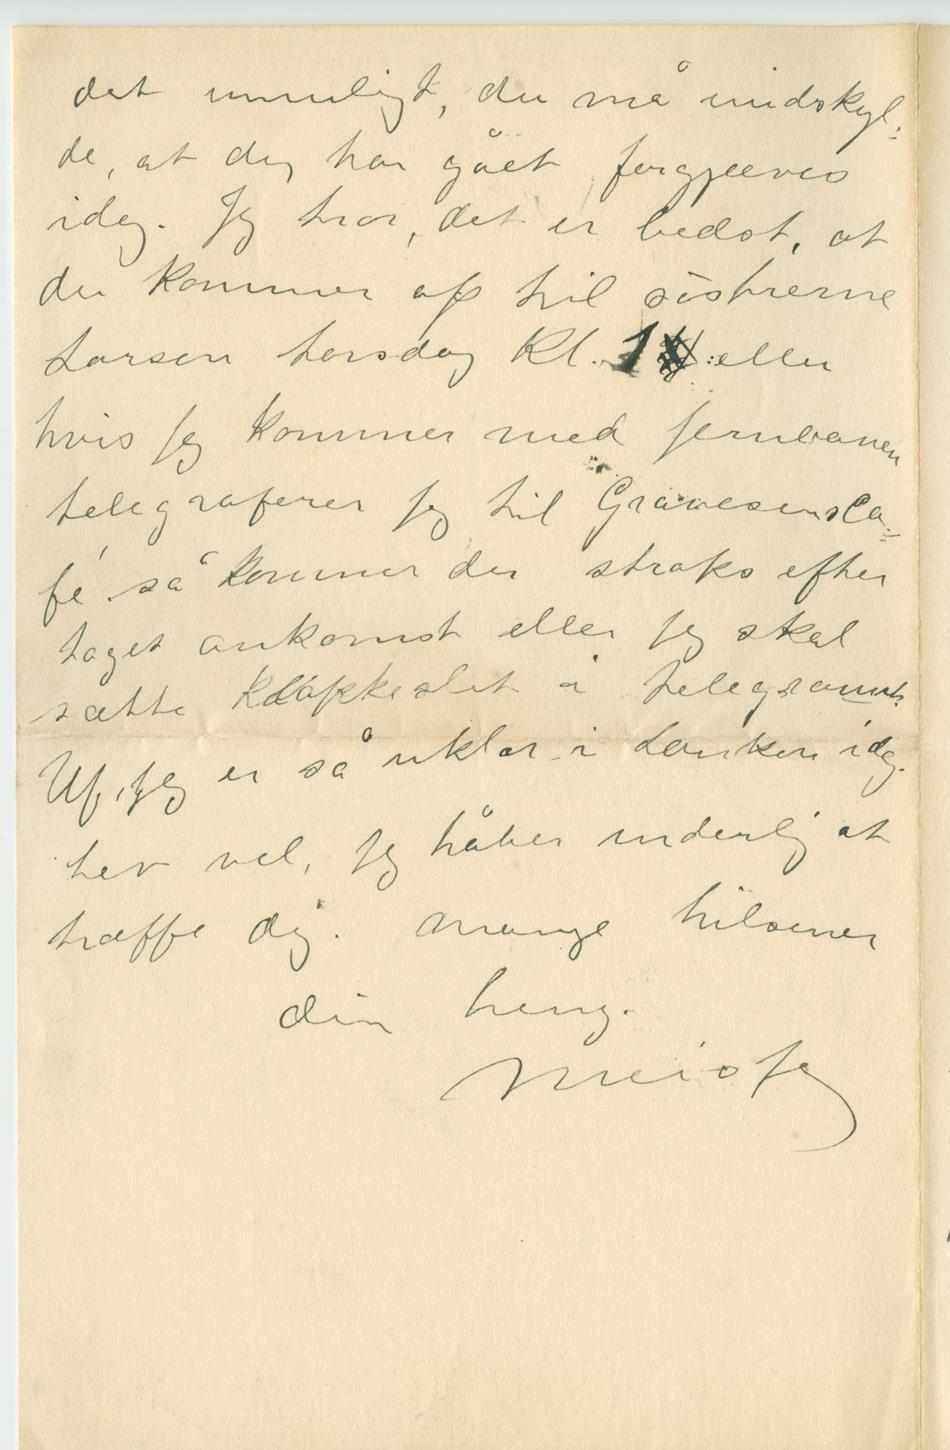 det umuligt, du må undskyl-
de, at du har gået forgjæves
idag. Jeg tror, det er bedst, at
du kommer op til søstrerne
Larsen torsdag Kl. 1 eller
hvis jeg kommer med jernbanen
telegraferer jeg til Gravesens Ca-
fé så kommer du straks efter
toget ankomst eller jeg skal
sætte Klokkeslet i telegramt.
Uf, jeg er så uklar i Tanken idag.
Lev vel, jeg håber inderlig at
træffe dig. mange hilsener
din heng.